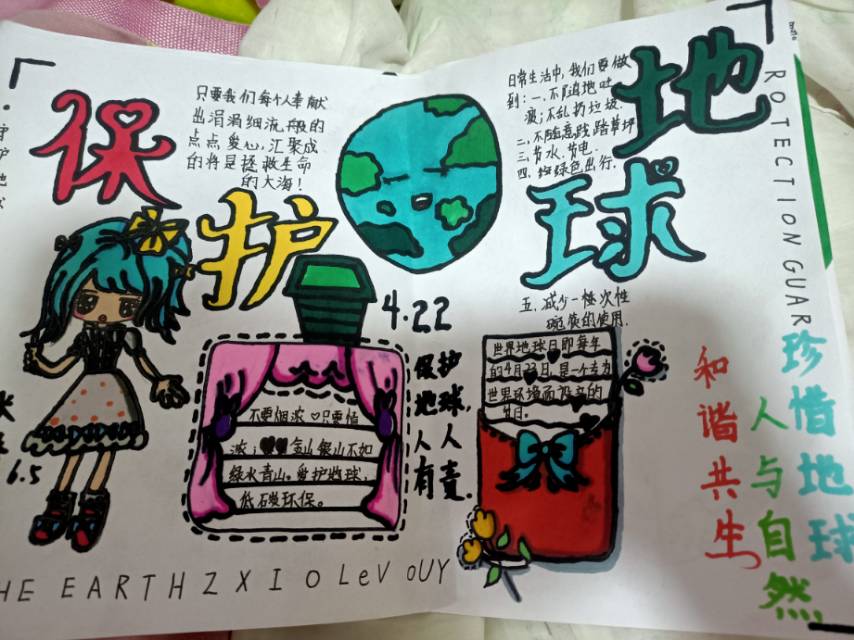 保护
地球
只要我们每个人奉献
出涓涓细流般的
点点爱心,汇聚成
的将是拯救生命
的大海!
日常生活中,我们要做
到:一、不随地吐
痰;不乱扔垃圾.
二、不随意践踏草坪
三、节水、节电.
四、绿色出行.
五、减少一性次性
碗筷的使用.
4.22
保护
地球,
人人
有责.
不要烟浓♡只要情
浓;♥♥金山银山不如
绿水青山。爱护地球,
低碳环保。
世界地球日即每年
的4月22日,是一个专为
世界环境而设立的
节日.
和谐共生
人与自然
珍惜地球
ROTECTION GUAR
6.5
HE EARTH Z X I O LeV OUY